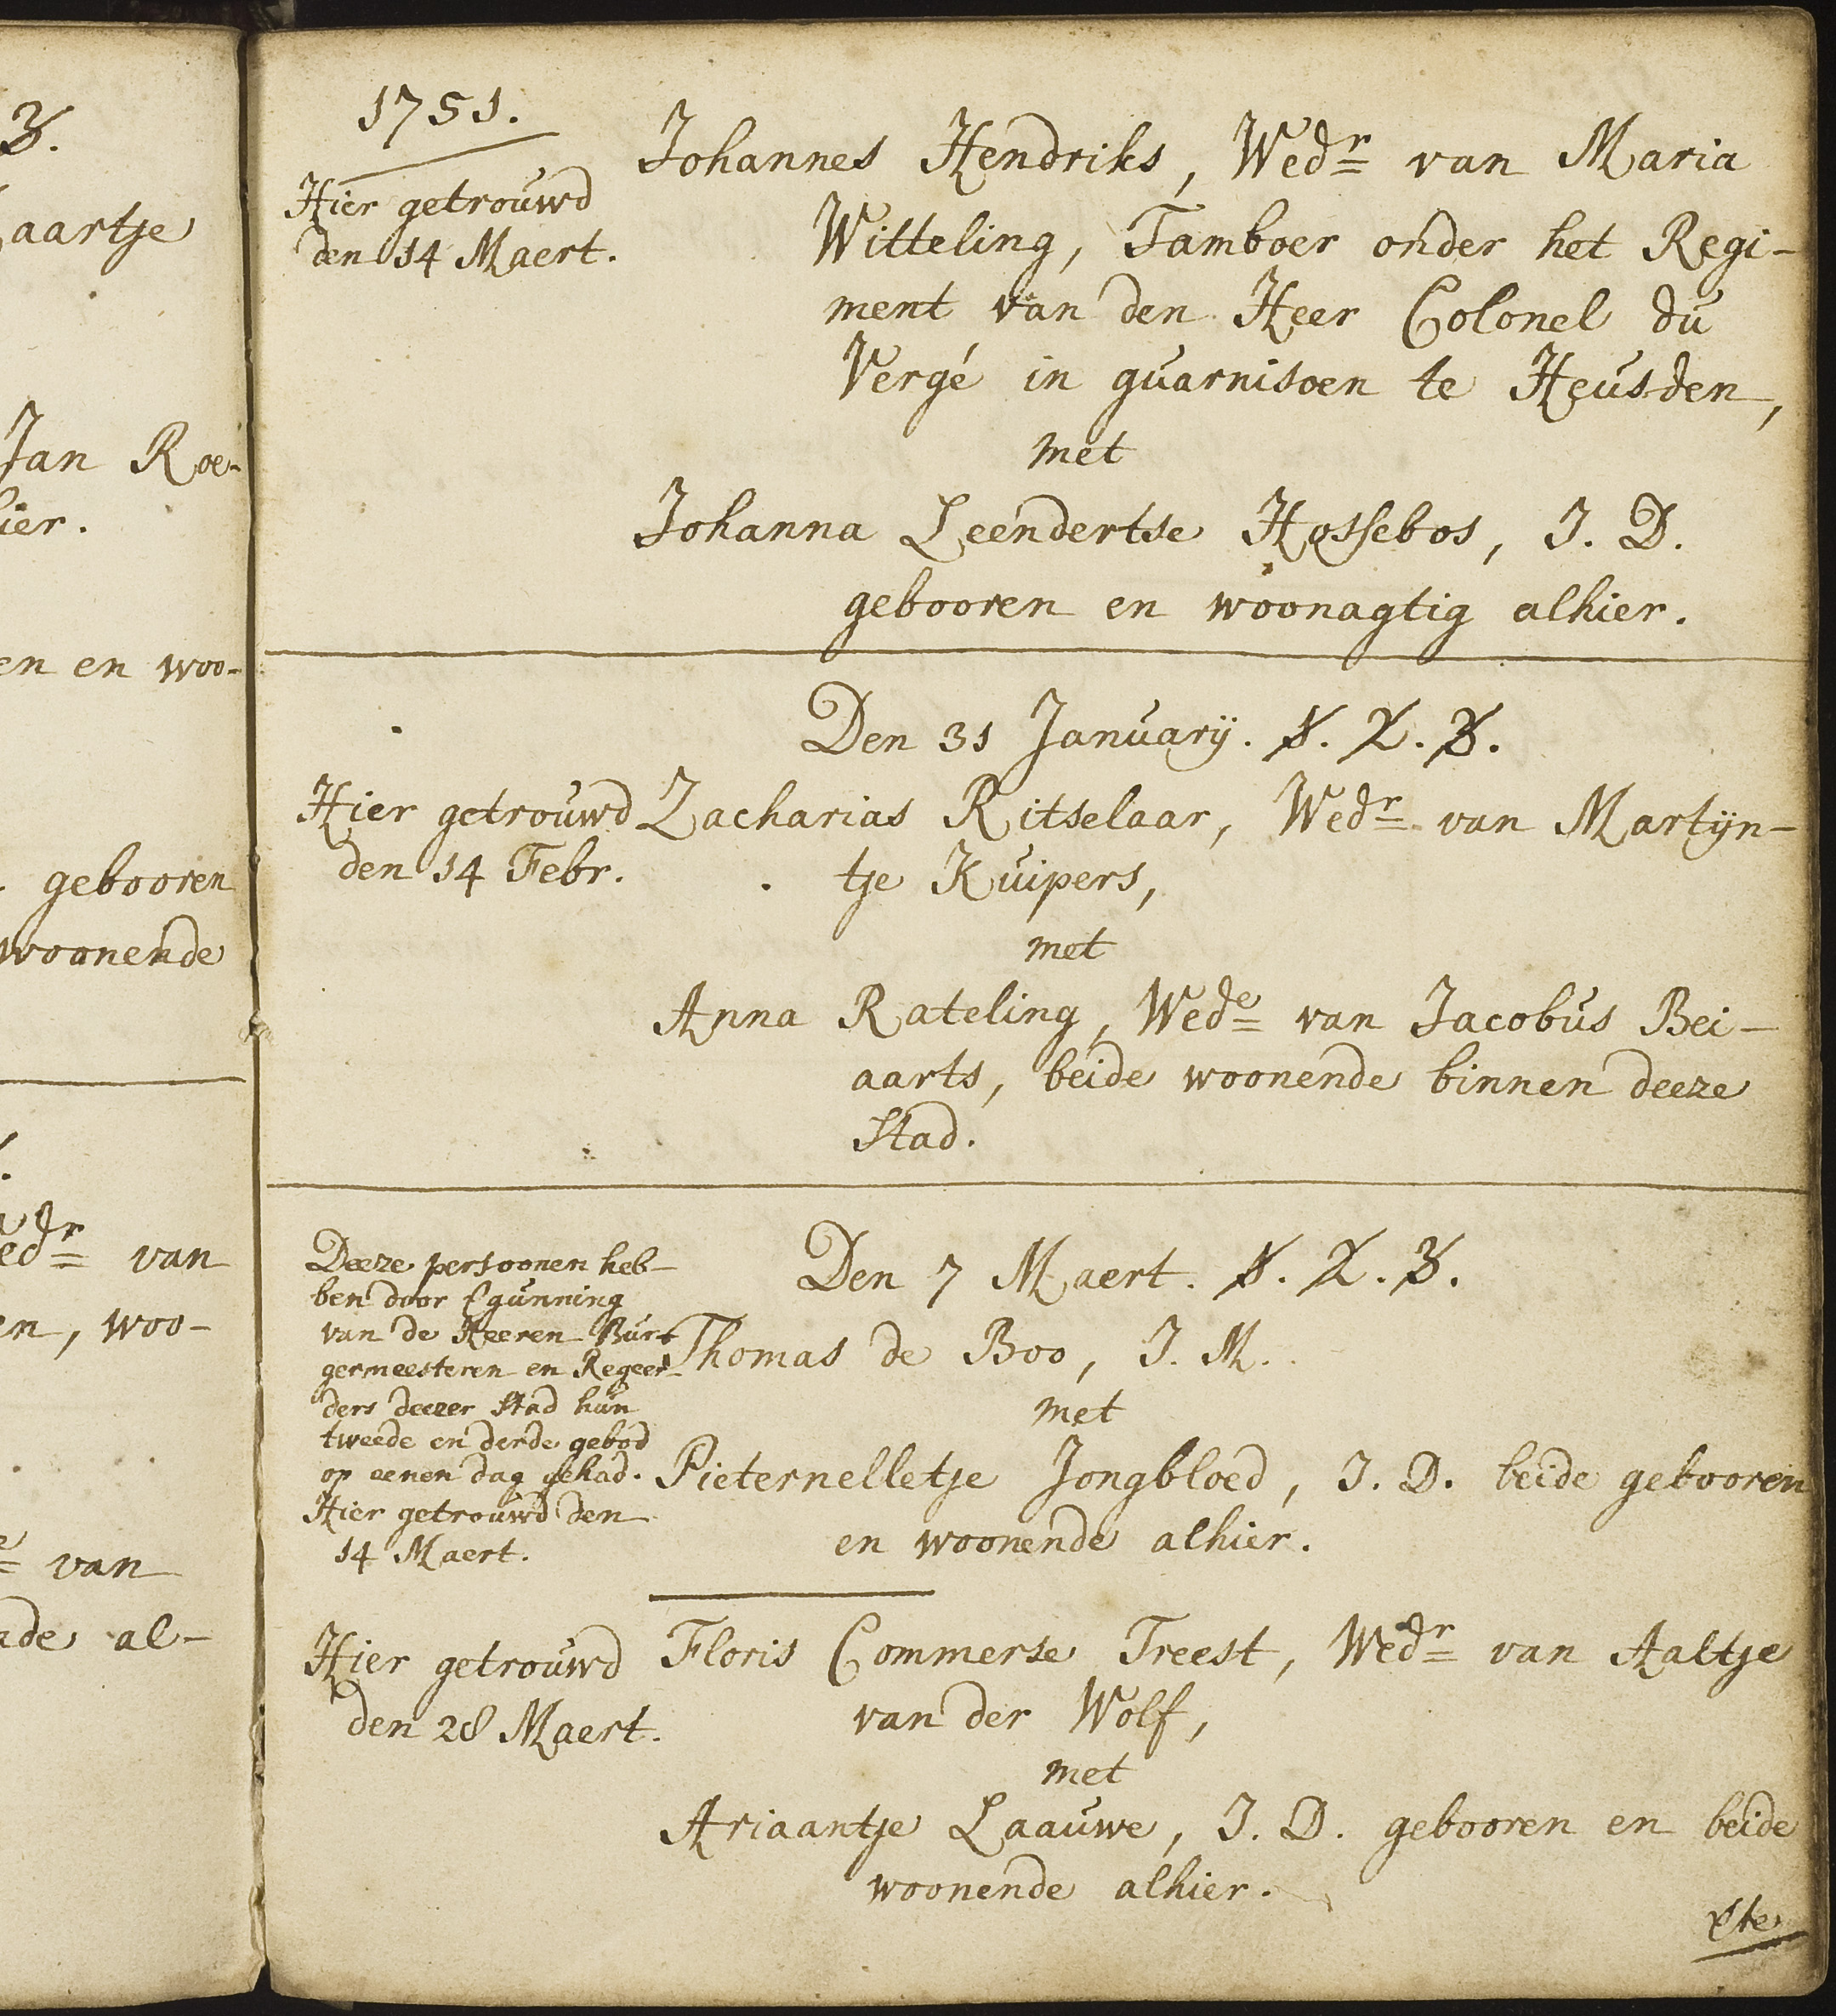 3.
aartje
Jan Roe-
hier.
en en woo-
gebooren
woonende
edr van
en, woo-
e van
nde al-
1751.
Hier getrouwd
den 14 Maert.
Johannes Hendriks, Wedr van Maria
Witteling, Tamboer onder het Regi-
ment van den Heer Colonel du
Vergé in guarnisoen te Heusden,
met
Johanna Leendertse Hossebos, J. D.
gebooren en woonagtig alhier.
Den 31 Januarij. 1. 2. 3.
Hier getrouwd
den 14 Febr.
Zacharias Ritselaar, Wedr van Martijn-
tje Kuipers,
met
Anna Rateling, Wede van Jacobus Bei-
aarts, beide woonende binnen deeze
Stad.
Deeze persoonen heb-
ben door
van de Heeren Bur-
germeesteren en Regeer-
ders deezer Stad hun
tweede en derde gebod
op eenen dag gehad.
Hier getrouwd den
14 Maert.
Den 7 Maert. 1. 2. 3.
Thomas de Boo, J. M.
met
Pieternelletje Jongbloed, J. D. beide gebooren
en woonende alhier.
Hier getrouwd
den 28 Maert.
Floris Commerse Treest, Wedr van Aaltje
van der Wolf,
met
Ariaantje Laauwe, J. D. gebooren en beide
woonende alhier.